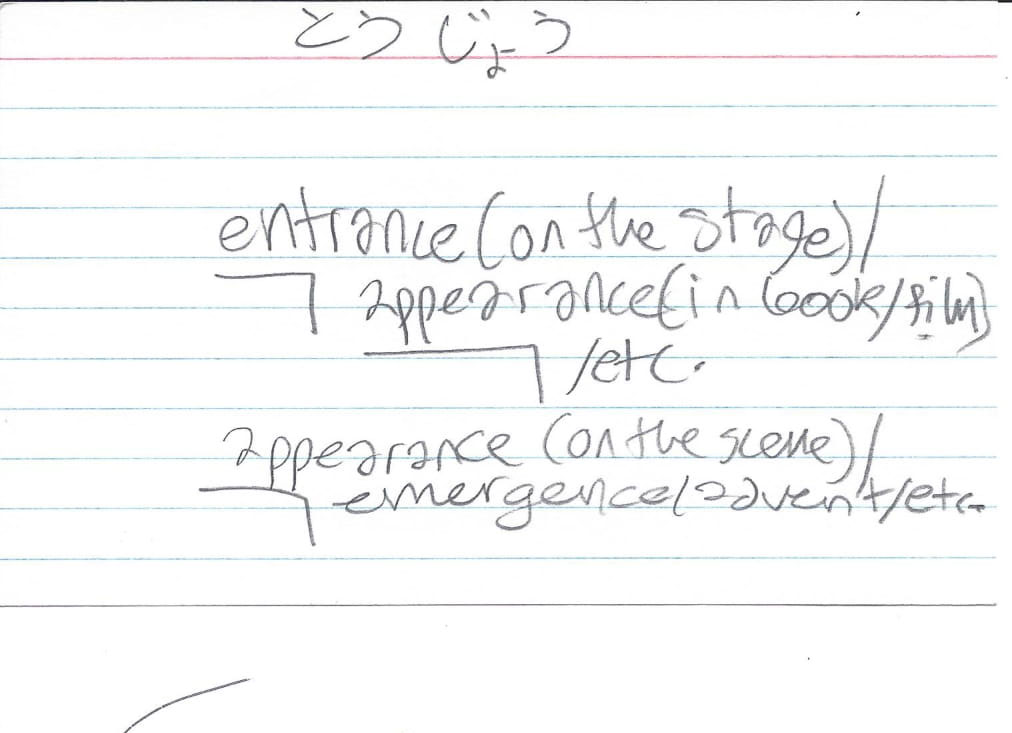 とうじょう
entrance (on the stage)/
appearance (in book/film)
/etc.
appearance (on the scene)/
emergence/advent/etc.